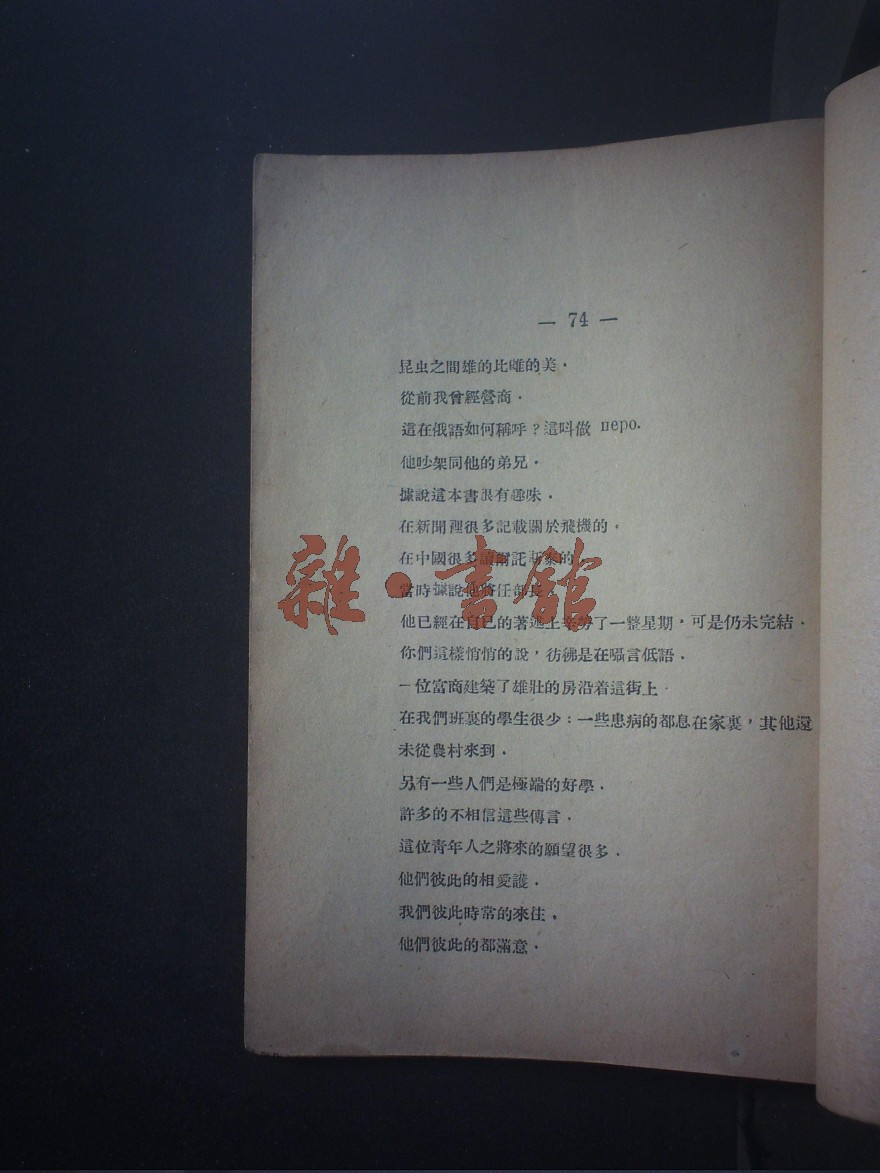 — 74 —
昆虫之間雄的比雌的美．
從前我曾經營商．
這在俄語如何稱呼？這叫做 перо.
他吵架同他的弟兄．
據說這本書很有趣味．
在新聞裡很多記載關於飛機的．
在中國很多讀爾託斯泰的
當時據說他將任部長
他已經在自己的著述上辛勞了一整星期，可是仍未完結．
你們這樣悄悄的說，彷彿是在囁言低語．
一位富商建築了雄壯的房沿着這街上．
在我們班裏的學生很少：一些患病的都息在家裏，其他還
未從農村來到．
另有一些人們是極端的好學．
許多的不相信這些傳言．
這位青年人之將來的願望很多．
他們彼此的相愛護．
我們彼此時常的來往．
他們彼此的都滿意．
雜·書館